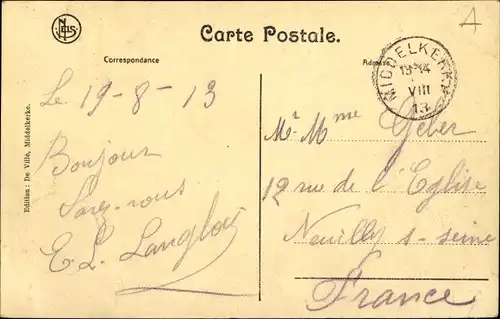 NELS
Carte Postale.
Correspondance
Adresse
Edition: De Ville, Middelkerke.
MIDDELKERKE
19-14
VIII
13
A
Le 19-8-13
Bonjour
E L. Langlois
Mr. Mme Geber
12 rue de l'Eglise
Neuilly s-seine
France